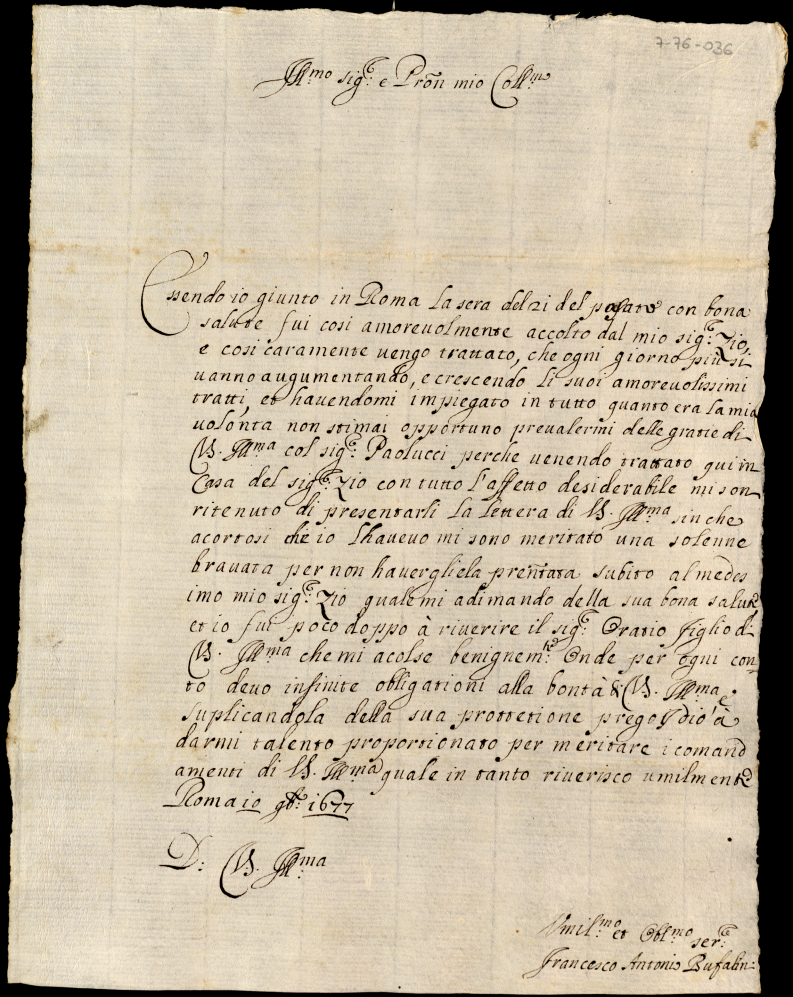 7-76-036
Ill.mo sig.re e Pron mio Coll.mo
Essendo io giunto in Roma la sera del 21 del pasato con bona
salute fui cosi amorevolmente accolto dal mio sig.re Zio,
e cosi caramente vengo trattato, che ogni giorno più si
vanno augumentando, e crescendo li suoi amorevolissimi
tratti, et havendomi impiegato in tutto quanto era la mia
volonta non stimai opportuno prevalermi delle gratie di
V.S. Ill.ma col sig.re Paolucci perche venendo trattato qui in
Casa del sig.re Zio con tutto l'affetto desiderabile mi son
ritenuto di presentarli la lettera di V.S. Ill.ma sin che
acortosi che io lhavevo mi sono meritato una solenne
bravata per non havergliela prentata subito al medes
imo mio sig.re Zio quale mi adimando della sua bona salute
et io fui poco doppo à riverire il sig.re Oratio figlio di
V.S. Ill.ma che mi acolse benignem.te Onde per ogni con
to devo infinite obligationi alla bontà di V.S. Ill.ma e
suplicandola della sua protterione prego Idio à
darmi talento proportionato per meritare i comand
amenti di V.S. Ill.ma quale in tanto riverisco umilmente
Roma 10 9b.re 1677
D: V.S. Ill.ma
Umil.mo et Obl.mo ser.re
Francesco Antonio Bufalin: